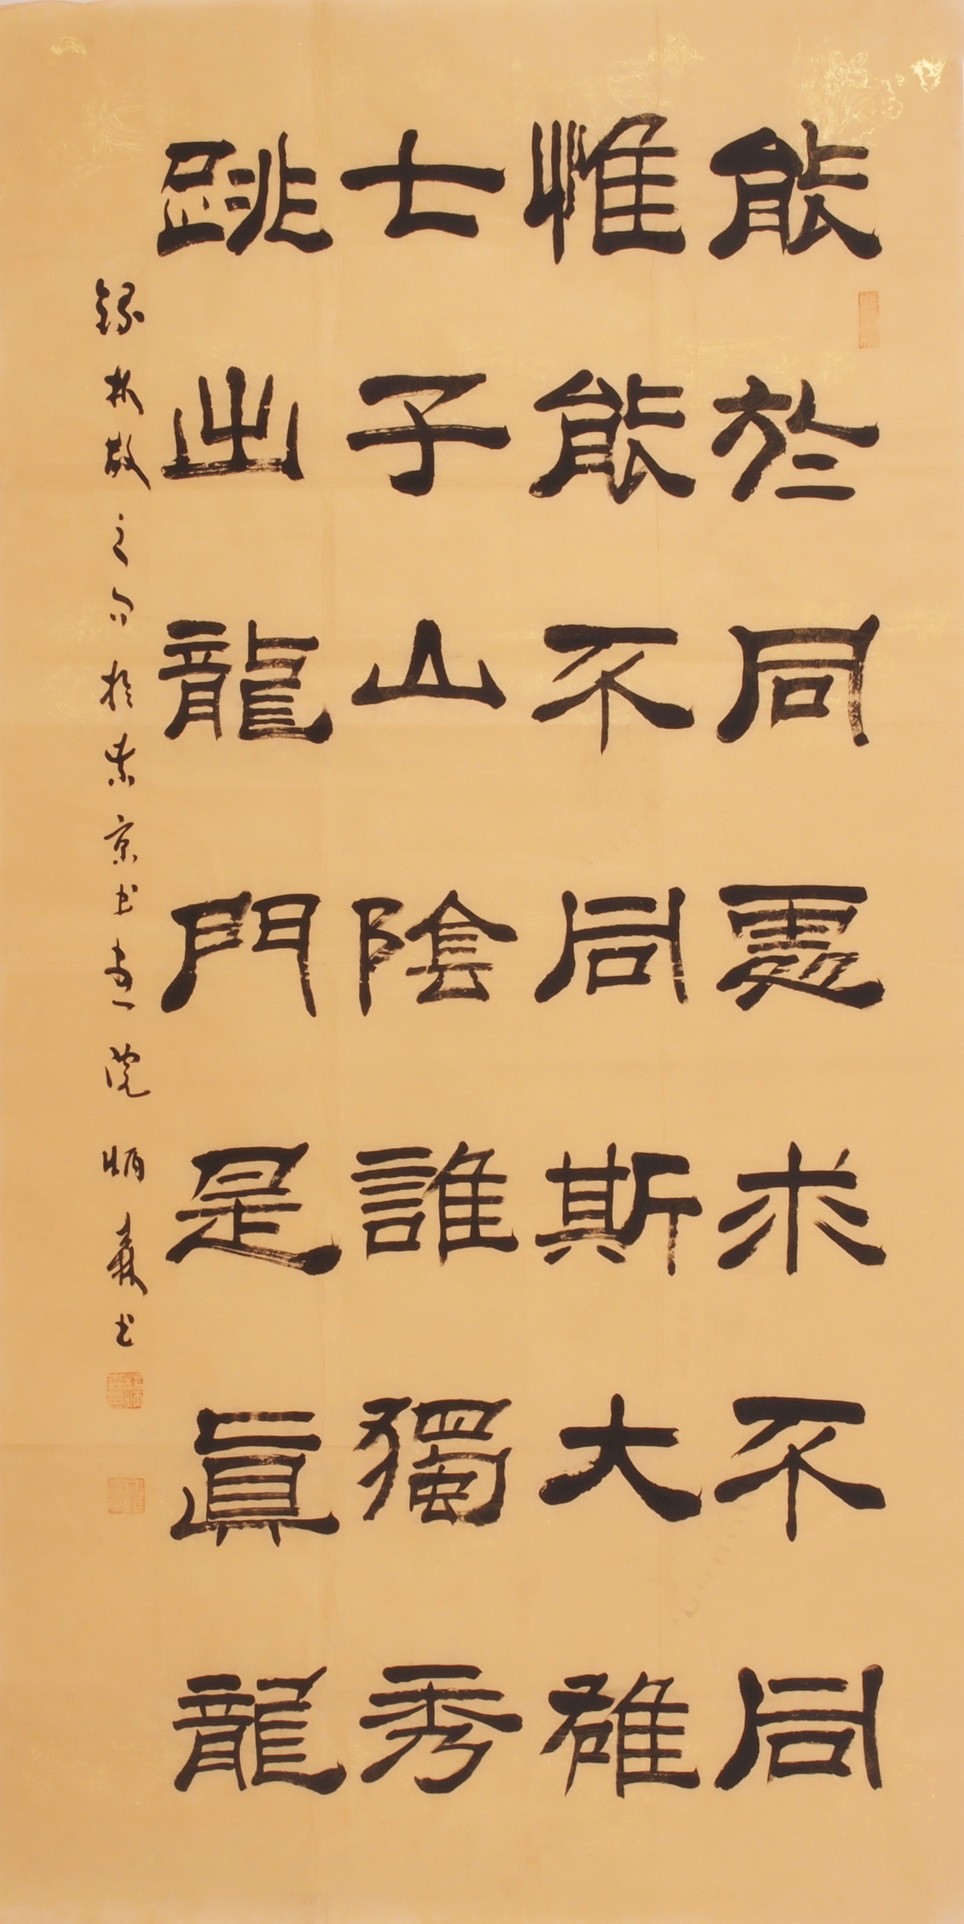 能於同處求不同
惟能不同斯大雄
七子山陰誰獨秀
跳出龍門是眞龍
錄林散之句於東京书畫院 炳森书